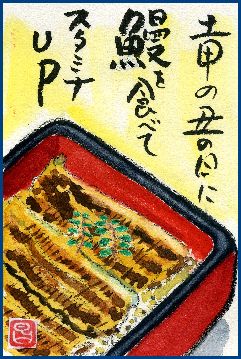 土用の丑の日に
鰻を食べて
スタミナ
UP